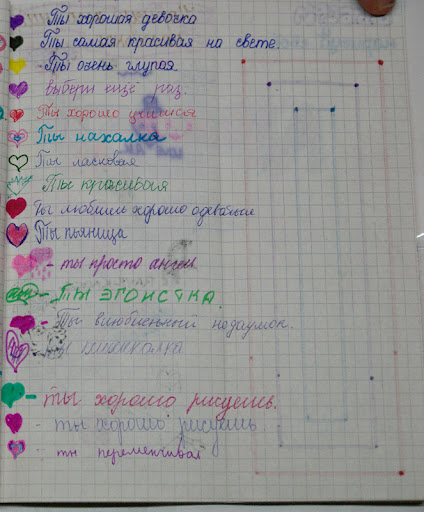 Ты хорошая девочка
Ты самая красивая на свете.
- Ты очень глупая
выбери ещё раз.
Ты хорошо учишься
Ты нахалка
Ты ласковая
Ты красивая
Ты любишь хорошо одеваться
Ты пьяница
- ты просто ангел
- ТЫ ЭГОИСТКА.
- Ты влюбленный подаумок.
Ты
- ты хорошо рисуешь.
- ты хорошо рисуешь.
- ты переменчивая